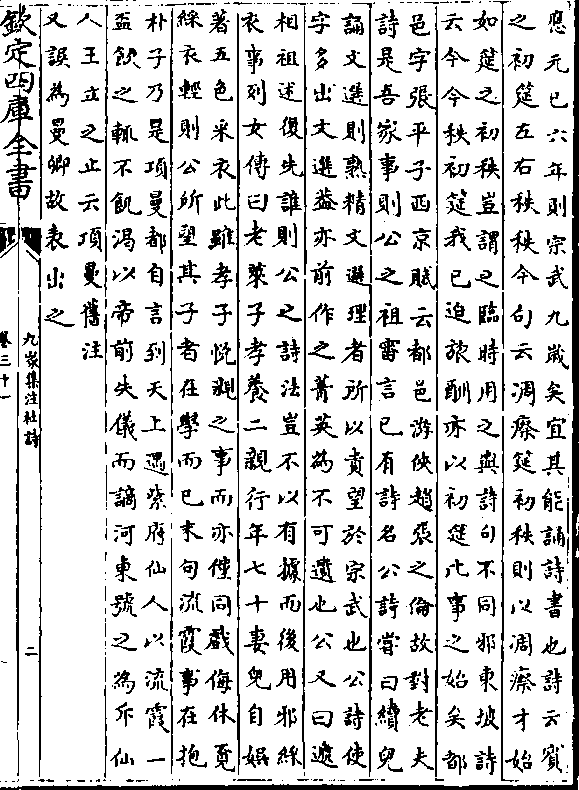 應元已六年則宗武九歲矣宜其能誦詩書也詩云賓
之初筵左右秩秩今句云凋瘵筵初秩則以凋瘵才始
如筵之初秩豈謂之臨時用之與詩句不同邪東坡詩
云今今秩初筵我已迫旅酬亦以初筵比事之始矣都
邑字張平子西京賦云都邑游俠趙張之倫故對老夫
詩是吾家事則公之祖審言已有詩名公詩嘗曰續兒
誦文選則熟精文選理者所以責望於宗武也公詩使
字多出文選蓋亦前作之菁英為不可遺也公又曰遞
相祖述復先誰則公之詩法豈不以有據而後用邪綵
衣事列女傳曰老萊子孝養二親行年七十妻兒自娯
著五色采衣此雖孝子悅親之事而亦僅同戲侮休覓
綵衣輕則公所望其子者在學而已末句流霞事在抱
朴子乃是項曼都自言到天上遇紫府仙人以流霞一
盃飲之輒不飢渴以帝前失儀而謫河東號之為斥仙
人王立之止云項曼舊注
又誤為曼卿故表出之
欽定四庫全書
九家集注杜詩
卷三十一
二